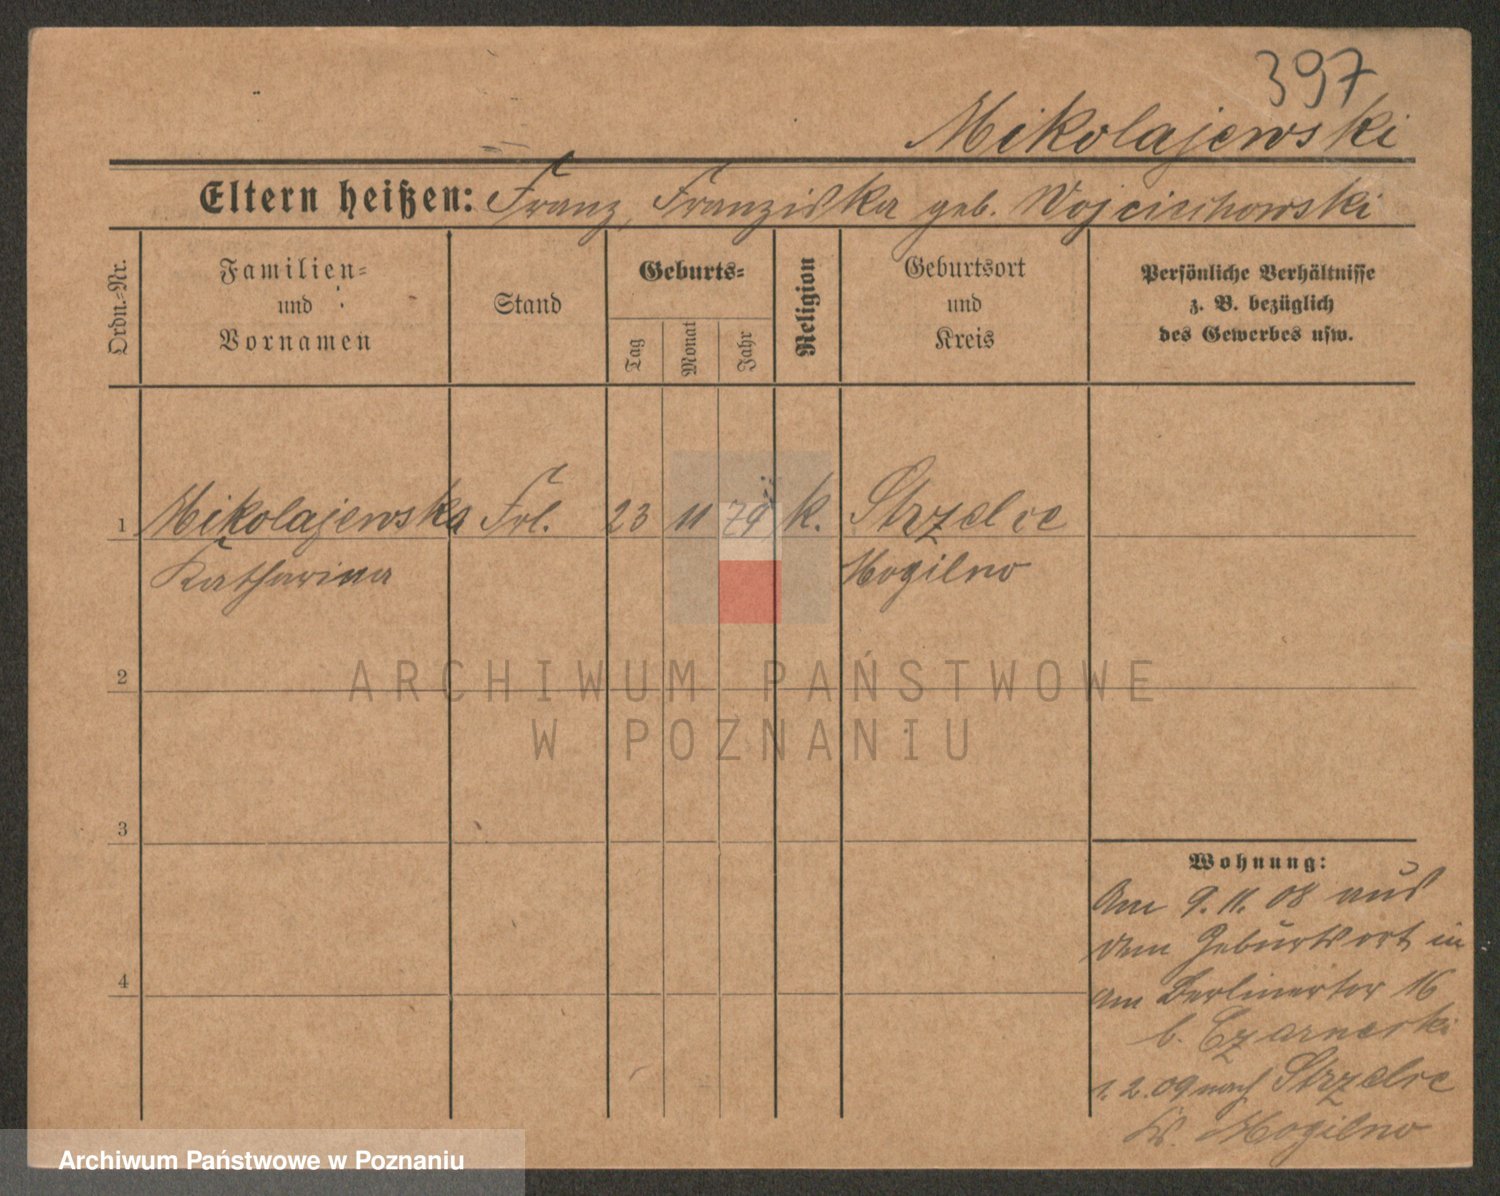 397
Mikolajewski
Eltern heißen: Franz, Franziska geb. Wojciechowski
Ordn.=Nr.
Familien=
und
Vornamen
Stand
Geburts=
Tag
Monat
Jahr
Religion
Geburtsort
und
Kreis
Persönliche Verhältnisse
z. B. bezüglich
des Gewerbes usw.
1 Mikolajewska Frl. 23 11 k. Strzelce
Katharina Mogilno
2
3
4
Wohnung:
Am 9. 11. 08 aus
dem Geburtsort in
am Berlinertor 16
b. Czarnecki
1. 2. 09 nach Strzelce
Kr. Mogilno
ARCHIWUM PAŃSTWOWE
W POZNANIU
Archiwum Państwowe w Poznaniu